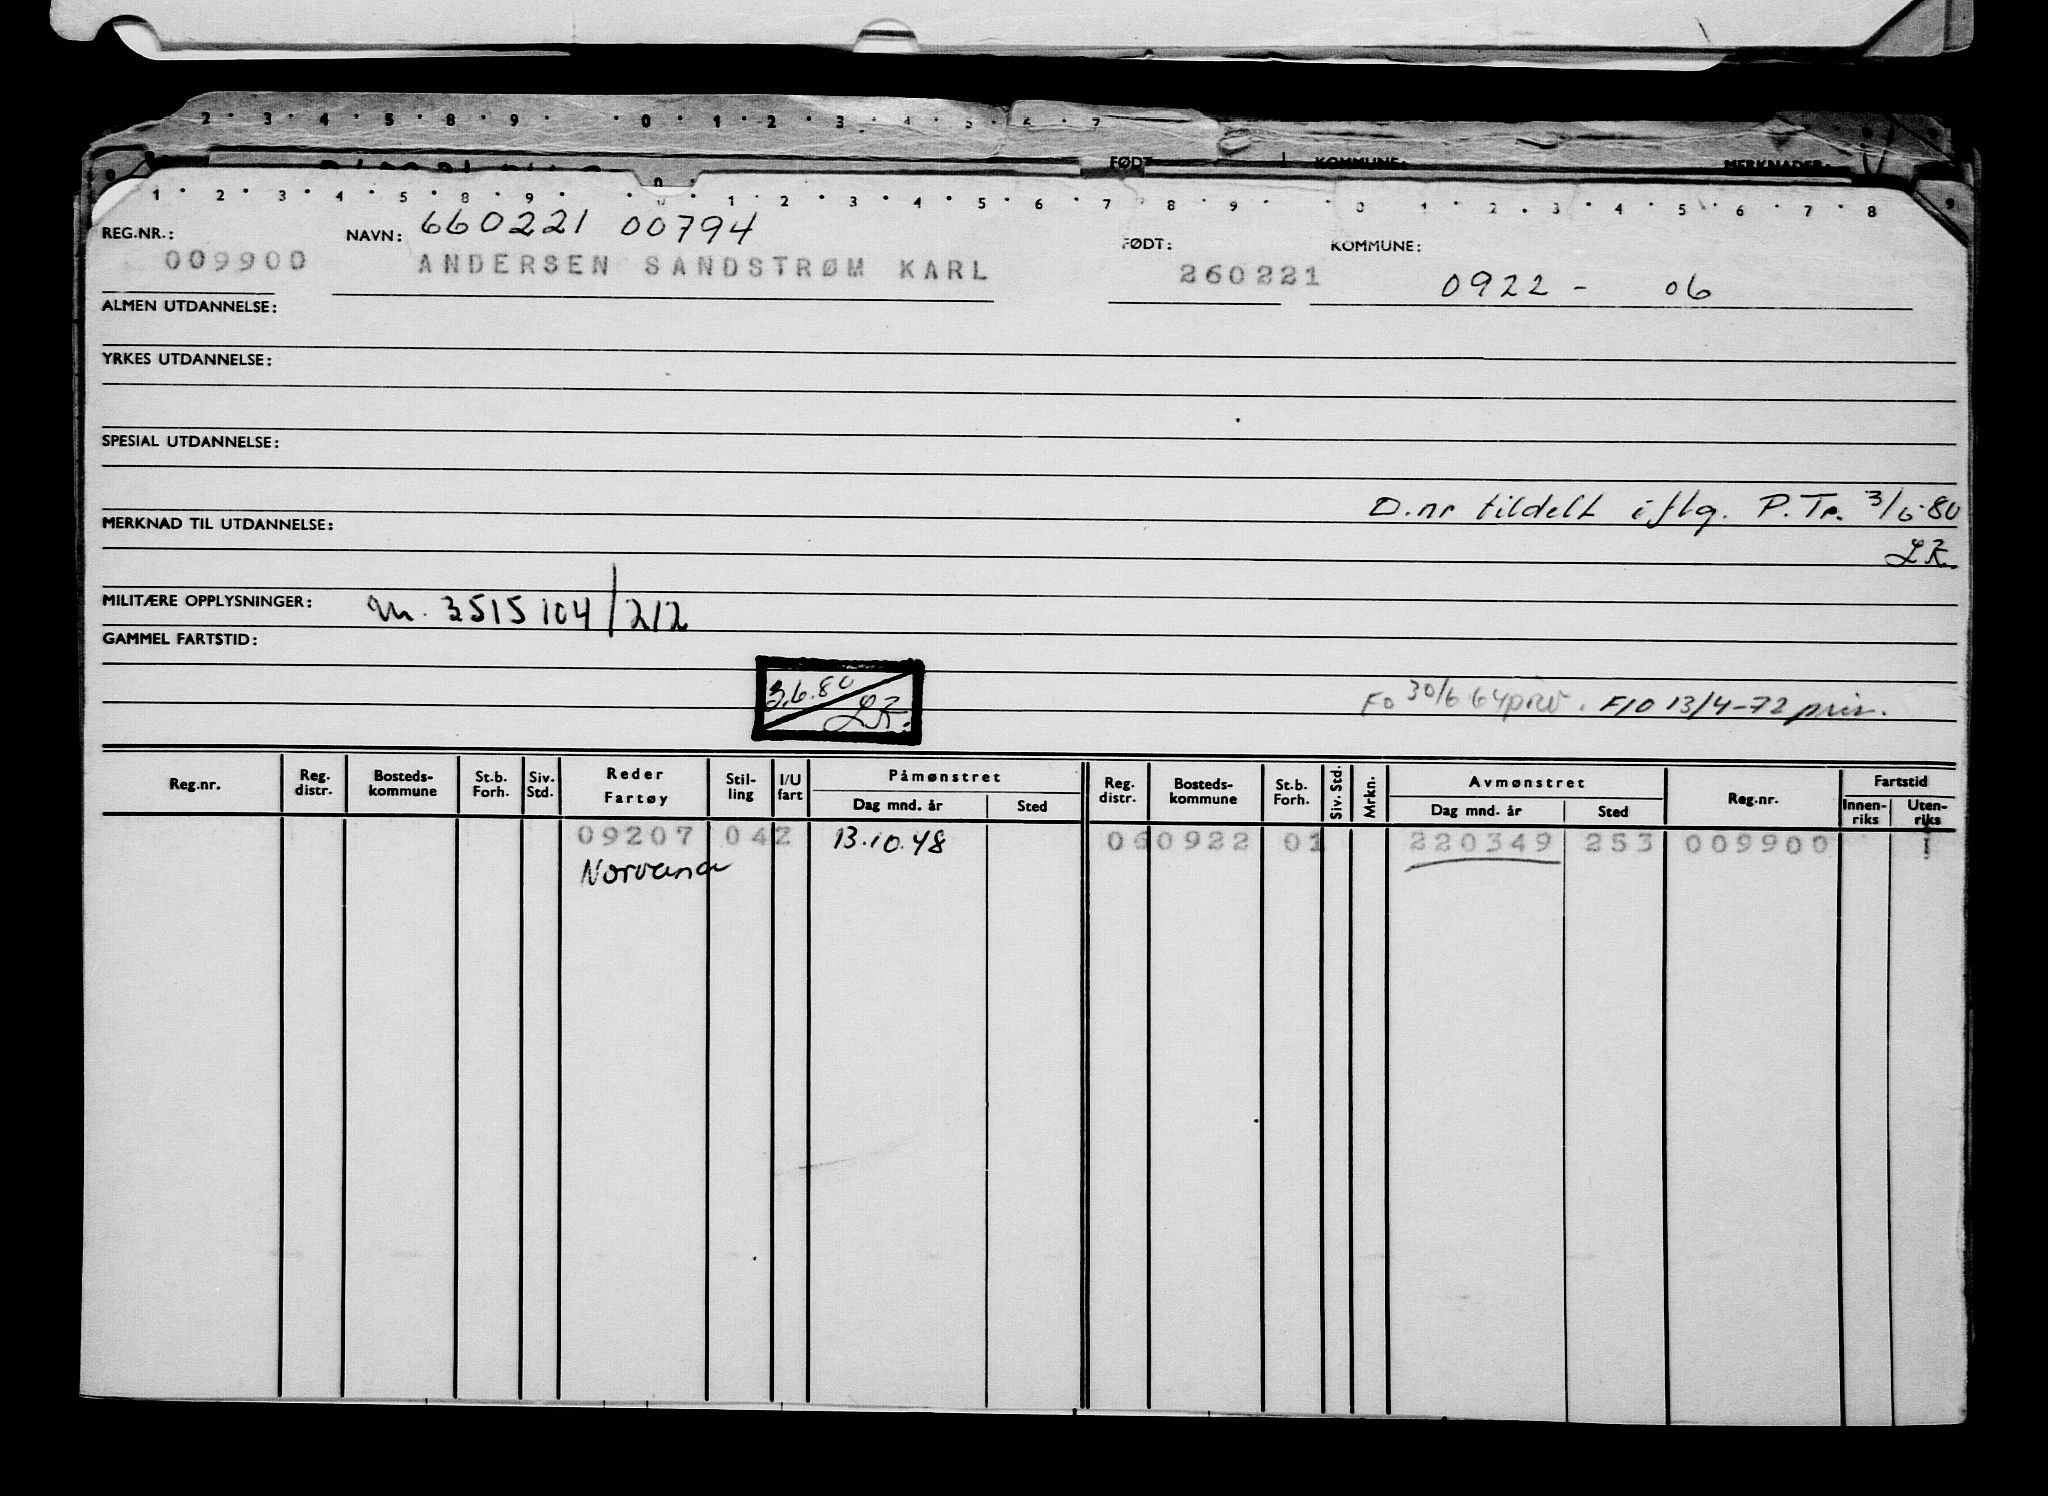 2 · 3 · 4 · 5 · 8 · 9 · · 0 · 1 · 2 · 3 · 4 · 5 · 6 · 7
FØDT KOMMUNE: MERKNADER:
1 · 2 · 3 · 4 · 5 · 8 · 9 · 0 · 1 · 2 · 3 · 4 · 5 · 6 · 7 · 8 · 9 · 0 · 1 · 2 · 3 · 4 · 5 · 6 · 7 · 8 9
660221 00794
REG.NR.: NAVN: FØDT: KOMMUNE:
009900 ANDERSEN SANDSTRØM KARL 260221 0922 - 06
ALMEN UTDANNELSE:
YRKES UTDANNELSE:
SPESIAL UTDANNELSE:
D.nr tildelt iflg. P.Tr. 3/6-80
MERKNAD TIL UTDANNELSE:
LR.
MILITÆRE OPPLYSNINGER: M. 3515104/212
GAMMEL FARTSTID:
3.6.80 LR.
Fo 30/6 64 priv. F10 13/4-72 priv.
Reg.nr. Reg. distr. Bosteds-kommune St.b. Forh. Siv. Std. Reder Fartøy Stil-ling I/U fart Påmønstret Dag mnd. år Sted Reg. distr. Bosteds-kommune St.b. Forh. Siv. Std. Mrkn. Avmønstret Dag mnd. år Sted Reg.nr. Fartstid Innen-riks Uten-riks
09207 042 13.10.48 060922 01 220349 253 009900
Norvana